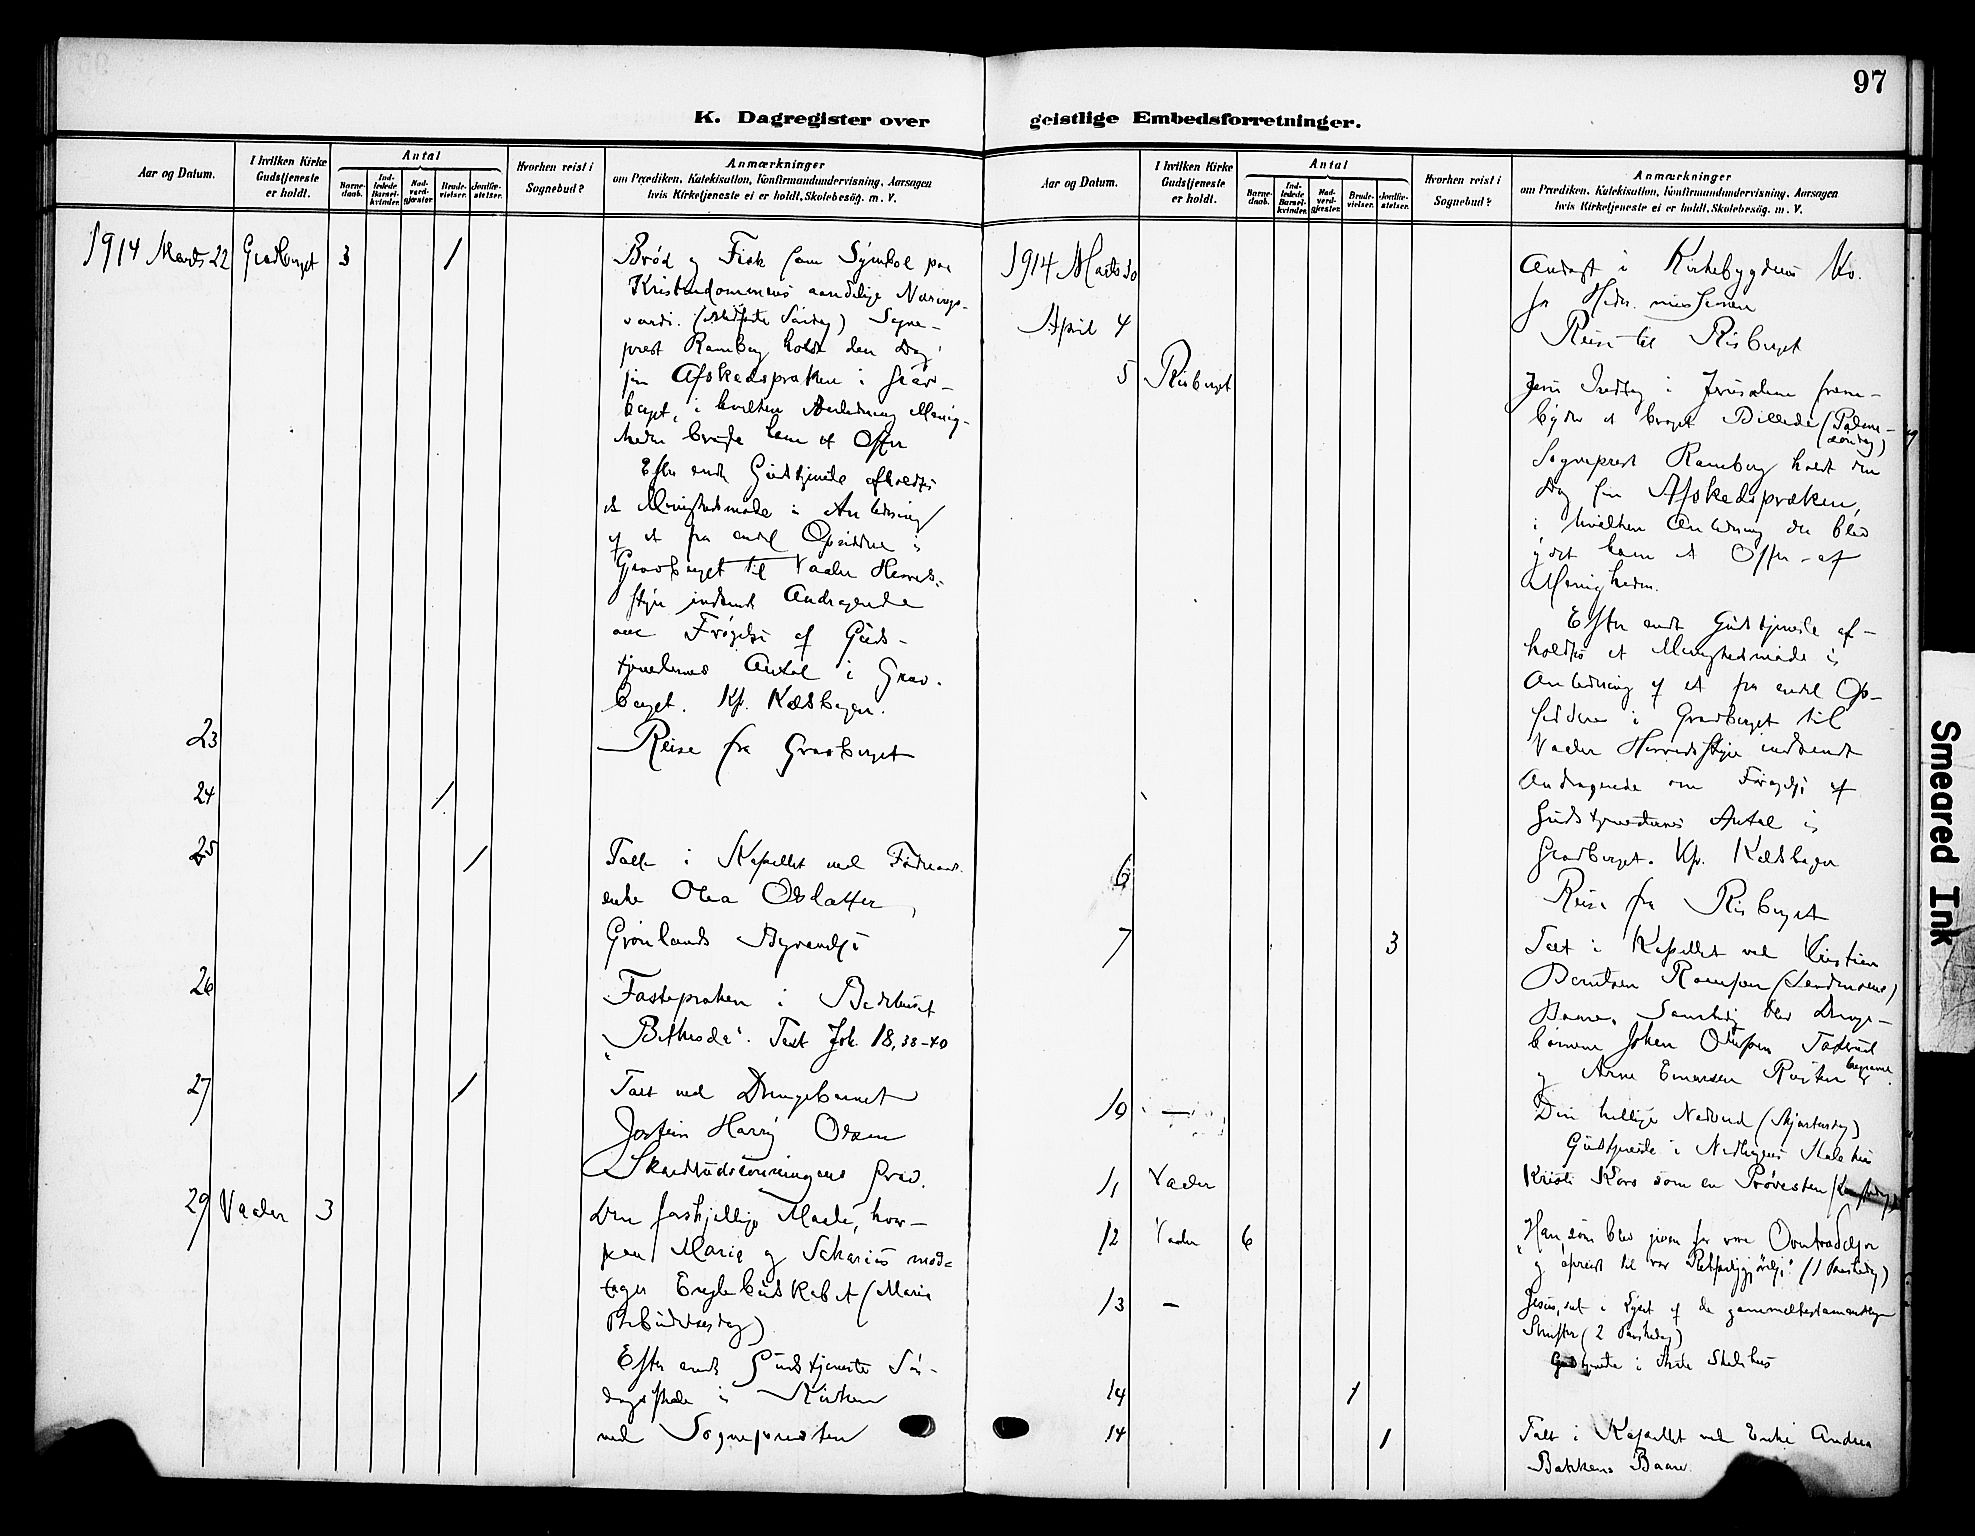 97
K. Dagregister over
geistlige Embedsforretninger.
Aar og Datum.
I hvilken Kirke Gudstjeneste er holdt.
Antal
Barne-daab.
Ind-ledede Barsel-kvinder.
Nad-verd-gjæster.
Brude-vielser.
Jordfæ-stelser.
Hvorhen reist i Sognebud?
Anmærkninger
om Prædiken, Katekisation, Konfirmandundervisning, Aarsagen
hvis Kirketjeneste ei er holdt, Skolebesøg. m. V.
1914 Marts 22 Gravberget 3 1 Brød og Fisk som Symbol paa
Kristendommens aandelige Nærings-
værdi. (Midfaste Søndag) Sogne-
prest Ramborg holdt den Dag
sin Afskedspræken i Grav-
berget, i hvilken Anledning Menig-
heden bragte ham et Offer
Efter endt Gudstjeneste afholdtes
et Menighedsmøde i Anledning
af et fra endel Opsiddere i
Gravberget til Vaaler Herreds-
styre indsendt Andragende
om Forøgelse af Guds-
tjenesternes Antal i Grav-
berget. Kp. Kølsbergen.
23 Reise fra Gravberget
24 1
25 1 Talt i Kapellet ved
enke Olea Olsdatter
Grønlands Begravelse
26 Fastepræken i Bedehuset
"Bethesda". Text Joh. 18, 38-40
27 1 Talt ved Drengebarnet
Jostein Harry Olsen
Grav.
29 Vaaler 3 Den forskjellige Maade, hvor-
paa Maria og Sakarias mod-
tager Englebudskabet (Maria
Bebudelsesdag)
Efter endt Gudstjeneste Søn-
dagsskole i Kirken
ved Sognepresten
Aar og Datum.
I hvilken Kirke Gudstjeneste er holdt.
Antal
Barne-daab.
Ind-ledede Barsel-kvinder.
Nad-verd-gjæster.
Brude-vielser.
Jordfæ-stelser.
Hvorhen reist i Sognebud?
Anmærkninger
om Prædiken, Katekisation, Konfirmandundervisning, Aarsagen
hvis Kirketjeneste ei er holdt, Skolebesøg. m. V.
1914 Marts 30 Andagt i Kirkebygdens Kv.
for Hedn. missionen
April 4 Reise til Risberget
5 Risberget Jesu Indtog i Jerusalem frem-
byder et broget Billede (Palme-
søndag)
Sogneprest Ramborg holdt den
Dag sin Afskedspræken,
i hvilken Anledning der blev
gjort ham et Offer af
Menigheden.
Efter endt Gudstjeneste af-
holdtes et Menighedsmøde i
Anledning af et fra endel Op-
siddere i Gravberget til
Vaaler Herredsstyre indsendt
Andragende om Forøgelse af
Gudstjenesternes Antal i
Gravberget. Kp. Kølsbergen
6 Reise fra Risberget
7 3 Talt i Kapellet ved Kristian
Berntsen
Baare. Samtidig blev Drenge-
børnene Johan Olufsen
og Arne begravet.
10 — Den hellige Nadverd (Skjærtorsdag)
Gudstjeneste i
11 Vaaler Kristi Kors som en Prøvesten
12 Vaaler 6 "Han som blev given for vore Overtrædelser
og opreist til vor Retfærdiggjørelse" (1 Paaskedag)
13 — Jesus, set i Lyset af de gammeltestamentlige
Skrifter (2 Paaskedag)
Gudstjeneste i Skolehus
14 1
14 1 Talt i Kapellet ved Enke Andrea
Bakkens Baare.
Smeared Ink